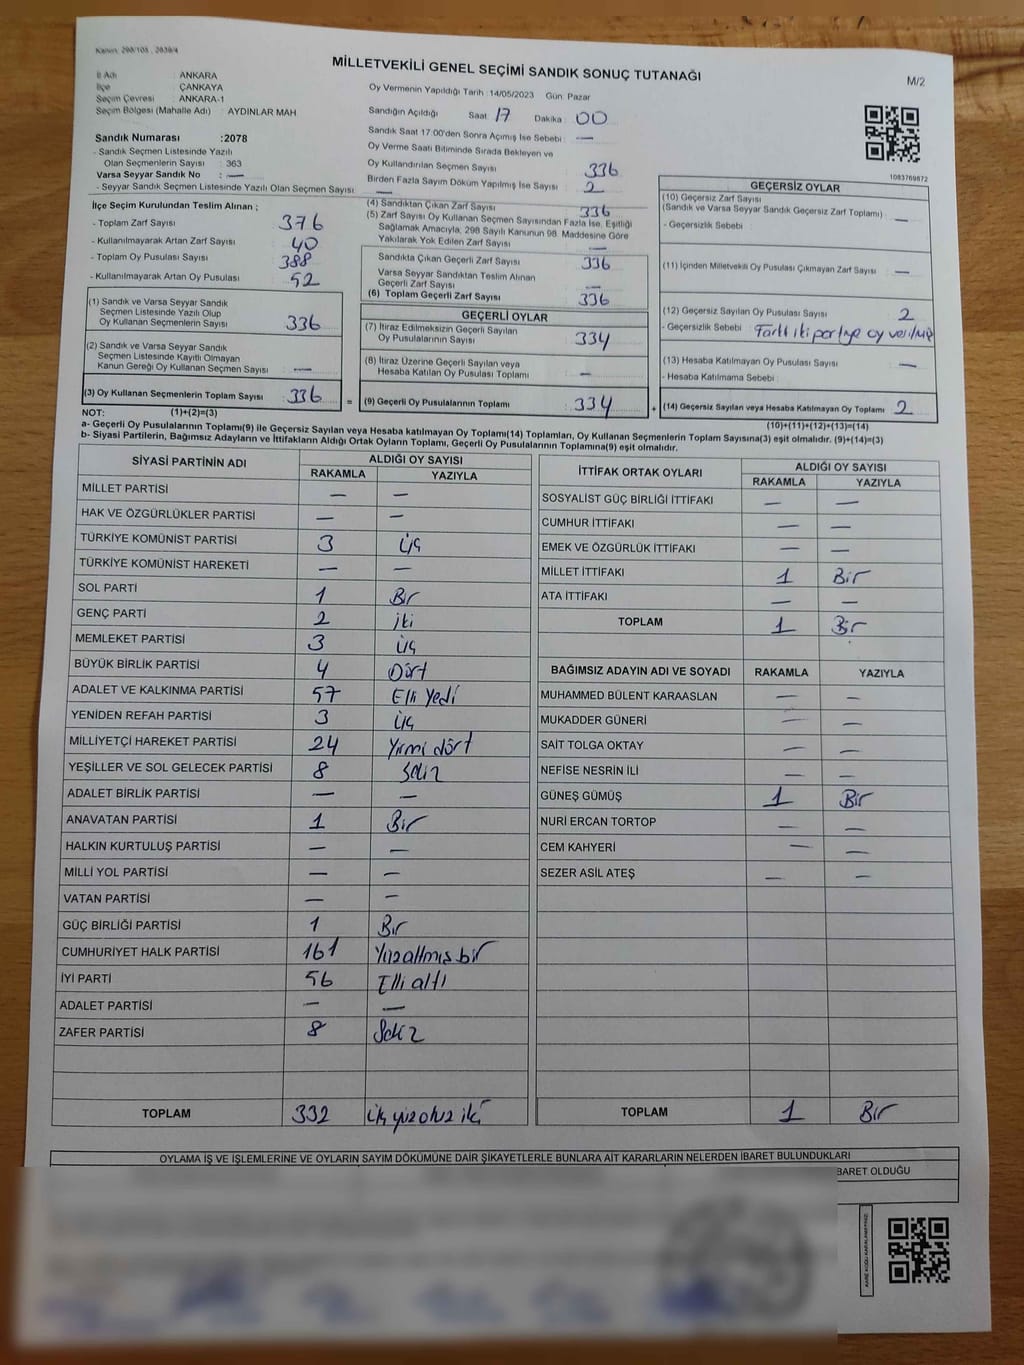 Kanun: 298/105 , 2839/4
MİLLETVEKİLİ GENEL SEÇİMİ SANDIK SONUÇ TUTANAĞI
M/2
İl Adı : ANKARA
İlçe : ÇANKAYA
Seçim Çevresi : ANKARA-1
Seçim Bölgesi (Mahalle Adı) : AYDINLAR MAH
Sandık Numarası :2078
- Sandık Seçmen Listesinde Yazılı
Olan Seçmenlerin Sayısı : 363
Varsa Seyyar Sandık No : —
- Seyyar Sandık Seçmen Listesinde Yazılı Olan Seçmen Sayısı : —
Oy Vermenin Yapıldığı Tarih :14/05/2023 Gün: Pazar
Sandığın Açıldığı Saat 17 Dakika 00
Sandık Saat 17:00'den Sonra Açımış İse Sebebi : —
Oy Verme Saati Bitiminde Sırada Bekleyen ve
Oy Kullandırılan Seçmen Sayısı 336
Birden Fazla Sayım Döküm Yapılmış İse Sayısı : 2
1083769872
İlçe Seçim Kurulundan Teslim Alınan ;
- Toplam Zarf Sayısı : 376
- Kullanılmayarak Artan Zarf Sayısı : 40
- Toplam Oy Pusulası Sayısı : 388
- Kullanılmayarak Artan Oy Pusulası : 52
(1) Sandık ve Varsa Seyyar Sandık
Seçmen Listesinde Yazılı Olup
Oy Kullanan Seçmenlerin Sayısı : 336
(2) Sandık ve Varsa Seyyar Sandık
Seçmen Listesinde Kayıtlı Olmayan
Kanun Gereği Oy Kullanan Seçmen Sayısı : —
(3) Oy Kullanan Seçmenlerin Toplam Sayısı : 336 =
(4) Sandıktan Çıkan Zarf Sayısı : 336
(5) Zarf Sayısı Oy Kullanan Seçmen Sayısından Fazla İse, Eşitliği
Sağlamak Amacıyla, 298 Sayılı Kanunun 98. Maddesine Göre
Yakılarak Yok Edilen Zarf Sayısı : —
Sandıkta Çıkan Geçerli Zarf Sayısı : 336
Varsa Seyyar Sandıktan Teslim Alınan
Geçerli Zarf Sayısı : —
(6) Toplam Geçerli Zarf Sayısı : 336
GEÇERLİ OYLAR
(7) İtiraz Edilmeksizin Geçerli Sayılan
Oy Pusulalarının Sayısı : 334
(8) İtiraz Üzerine Geçerli Sayılan veya
Hesaba Katılan Oy Pusulası Toplamı : —
(9) Geçerli Oy Pusulalarının Toplamı : 334 +
GEÇERSİZ OYLAR
(10) Geçersiz Zarf Sayısı
(Sandık ve Varsa Seyyar Sandık Geçersiz Zarf Toplamı) : —
- Geçersizlik Sebebi :
(11) İçinden Milletvekili Oy Pusulası Çıkmayan Zarf Sayısı : —
(12) Geçersiz Sayılan Oy Pusulası Sayısı : 2
- Geçersizlik Sebebi : Farklı iki partiye oy verilmiş
(13) Hesaba Katılmayan Oy Pusulası Sayısı : —
- Hesaba Katılmama Sebebi :
(14) Geçersiz Sayılan veya Hesaba Katılmayan Oy Toplamı : 2
NOT: (1)+(2)=(3)
(10)+(11)+(12)+(13)=(14)
a- Geçerli Oy Pusulaları Toplamı(9) ile Geçersiz Sayılan veya Hesaba Katılmayan Oy Toplamı(14) Toplamları, Oy Kullanan Seçmenlerin Toplam Sayısına(3) eşit olmalıdır. (9)+(14)=(3)
b- Siyasi Partilerin, Bağımsız Adayların ve İttifakların Aldığı Ortak Oyların Toplamı, Geçerli Oy Pusulalarının Toplamına(9) eşit olmalıdır.
SİYASİ PARTİNİN ADI ALDIĞI OY SAYISI
RAKAMLA YAZIYLA
MİLLET PARTİSİ — —
HAK VE ÖZGÜRLÜKLER PARTİSİ — —
TÜRKİYE KOMÜNİST PARTİSİ 3 üç
TÜRKİYE KOMÜNİST HAREKETİ — —
SOL PARTİ 1 Bir
GENÇ PARTİ 2 iki
MEMLEKET PARTİSİ 3 üç
BÜYÜK BİRLİK PARTİSİ 4 Dört
ADALET VE KALKINMA PARTİSİ 57 Elli yedi
YENİDEN REFAH PARTİSİ 3 üç
MİLLİYETÇİ HAREKET PARTİSİ 24 Yirmi dört
YEŞİLLER VE SOL GELECEK PARTİSİ 8 Sekiz
ADALET BİRLİK PARTİSİ — —
ANAVATAN PARTİSİ 1 Bir
HALKIN KURTULUŞ PARTİSİ — —
MİLLİ YOL PARTİSİ — —
VATAN PARTİSİ — —
GÜÇ BİRLİĞİ PARTİSİ 1 Bir
CUMHURİYET HALK PARTİSİ 161 Yüzaltmış bir
İYİ PARTİ 56 Elli altı
ADALET PARTİSİ — —
ZAFER PARTİSİ 8 Sekiz
TOPLAM 332 üç yüz otuz iki
İTTİFAK ORTAK OYLARI ALDIĞI OY SAYISI
RAKAMLA YAZIYLA
SOSYALİST GÜÇ BİRLİĞİ İTTİFAKI — —
CUMHUR İTTİFAKI — —
EMEK VE ÖZGÜRLÜK İTTİFAKI — —
MİLLET İTTİFAKI 1 Bir
ATA İTTİFAKI — —
TOPLAM 1 Bir
BAĞIMSIZ ADAYIN ADI VE SOYADI RAKAMLA YAZIYLA
MUHAMMED BÜLENT KARAASLAN — —
MUKADDER GÜNERİ — —
SAİT TOLGA OKTAY — —
NEFİSE NESRİN İLİ — —
GÜNEŞ GÜMÜŞ 1 Bir
NURİ ERCAN TORTOP — —
CEM KAHYERİ — —
SEZER ASİL ATEŞ — —
TOPLAM 1 Bir
OYLAMA İŞ VE İŞLEMLERİNE VE OYLARIN SAYIM DÖKÜMÜNE DAİR ŞİKAYETLERLE BUNLARA AİT KARARLARIN NELERDEN İBARET BULUNDUKLARI
BARET OLDUĞU